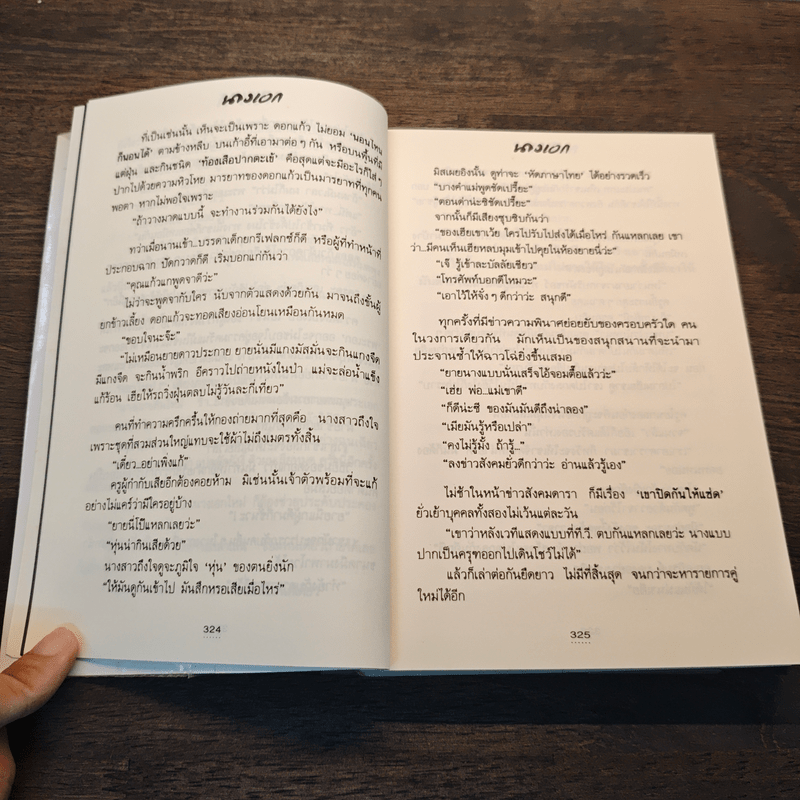 นางเอก
ที่เป็นเช่นนั้น เห็นจะเป็นเพราะ ดอกแก้ว ไม่ยอม ‘นอนไหน
ก็นอนได้’ ตามข้างหลืบ บนเก้าอี้ที่เอามาต่อๆ กัน หรือบนพื้นที่มี
แต่ฝุ่น และกินชนิด ‘ท้องเสือปากตะเข้’ คือสุดแต่จะมีอะไรก็ใส่ๆ
ปากไปด้วยความหิวโหย มารยาทของดอกแก้วเป็นมารยาทที่ทุกคน
พอตา หากไม่พอใจเพราะ
“ถ้าวางมาดแบบนี้ จะทำงานร่วมกันได้ยังไง”
ทว่าเมื่อนานเข้า...บรรดาเด็กยกรีเฟลกซ์ก็ดี หรือผู้ที่ทำหน้าที่
ประกอบฉาก ปัดกวาดก็ดี เริ่มบอกแก่กันว่า
“คุณแก้วแกพูดจาดีว่ะ”
ไม่ว่าจะพูดจากับใคร นับจากตัวแสดงด้วยกัน มาจนถึงชั้นผู้
ยกข้าวเลี้ยง ดอกแก้วจะทอดเสียงอ่อนโยนเหมือนกันหมด
“ขอบใจนะจ๊ะ”
“ไม่เหมือนยายดาวประกาย ยายนั่นมีแกงมัสมั่นจะกินแกงจืด
มีแกงจืด จะกินน้ำพริก อีคราวไปถ่ายหนังในป่า แม่จะล่อน้ำแข็ง
แก้ร้อน เฮียให้รถวิ่งฝุ่นตลบไม่รู้วันละกี่เที่ยว”
คนที่ทำความครึกครื้นให้กองถ่ายมากที่สุดคือ นางสาวถึงใจ
เพราะชุดที่สวมส่วนใหญ่แทบจะใช้ผ้าไม่ถึงเมตรทั้งสิ้น
“เดี๋ยว...อย่าเพิ่งแก้”
ครูผู้กำกับเสียอีกต้องคอยห้าม มิเช่นนั้นเจ้าตัวพร้อมที่จะแก้
อย่างไม่แคร์ว่ามีใครอยู่บ้าง
“ยายนี่โป๊แหลกเลยว่ะ”
“หุ่นน่ากินเสียด้วย”
นางสาวถึงใจดูจะภูมิใจ ‘หุ่น’ ของตนยิ่งนัก
“ให้มันดูกันเข้าไป มันสึกหรอเสียเมื่อไหร่”
324
นางเอก
มิสเผยอิงนั้น ดูท่าจะ ‘หัดภาษาไทย’ ได้อย่างรวดเร็ว
“บางคำแม่พูดชัดเปรี๊ยะ”
“ตอนด่าน่ะซิชัดเปรี๊ยะ”
จากนั้นก็มีเสียงซุบซิบกันว่า
“ของเฮียเขาเว้ย ใครไปรับไปส่งได้เมื่อไหร่ กันแหลกเลย เขา
ว่า...มีคนเห็นเฮียหลบมุมเข้าไปคุยในห้องยายนี่ว่ะ”
“เจ๊ รู้เข้าละบัลลัยเชียว”
“โทรศัพท์บอกดีไหมวะ”
“เอาไว้ให้จั๋งๆ ดีกว่าว่ะ สนุกดี”
ทุกครั้งที่มีข่าวความพินาศย่อยยับของครอบครัวใด คน
ในวงการเดียวกัน มักเห็นเป็นของสนุกสนานที่จะนำมา
ประจานซ้ำให้ฉาวโฉ่ยิ่งขึ้นเสมอ
“ยายนางแบบนั่นเสร็จไอ้จอมตื้อแล้วว่ะ”
“เฮ่ย พ่อ...แม่เขาดี”
“ก็ดีน่ะซี ของมันมันดีถึงน่าลอง”
“เมียมันรู้หรือเปล่า”
“คงไม่รู้มั้ง ถ้ารู้...”
“ลงข่าวสังคมยั่วดีกว่าว่ะ อ่านแล้วรู้เอง”
ไม่ช้าในหน้าข่าวสังคมดารา ก็มีเรื่อง ‘เขาปิดกันให้แซ่ด’
ยั่วเย้าบุคคลทั้งสองไม่เว้นแต่ละวัน
“เขาว่าหลังเวทีแสดงแบบที่ที.วี. ตบกันแหลกเลยว่ะ นางแบบ
ปากเป็นครุฑออกไปเดินโชว์ไม่ได้”
แล้วก็เล่าต่อกันยืดยาว ไม่มีที่สิ้นสุด จนกว่าจะหารายการคู่
ใหม่ได้อีก
325